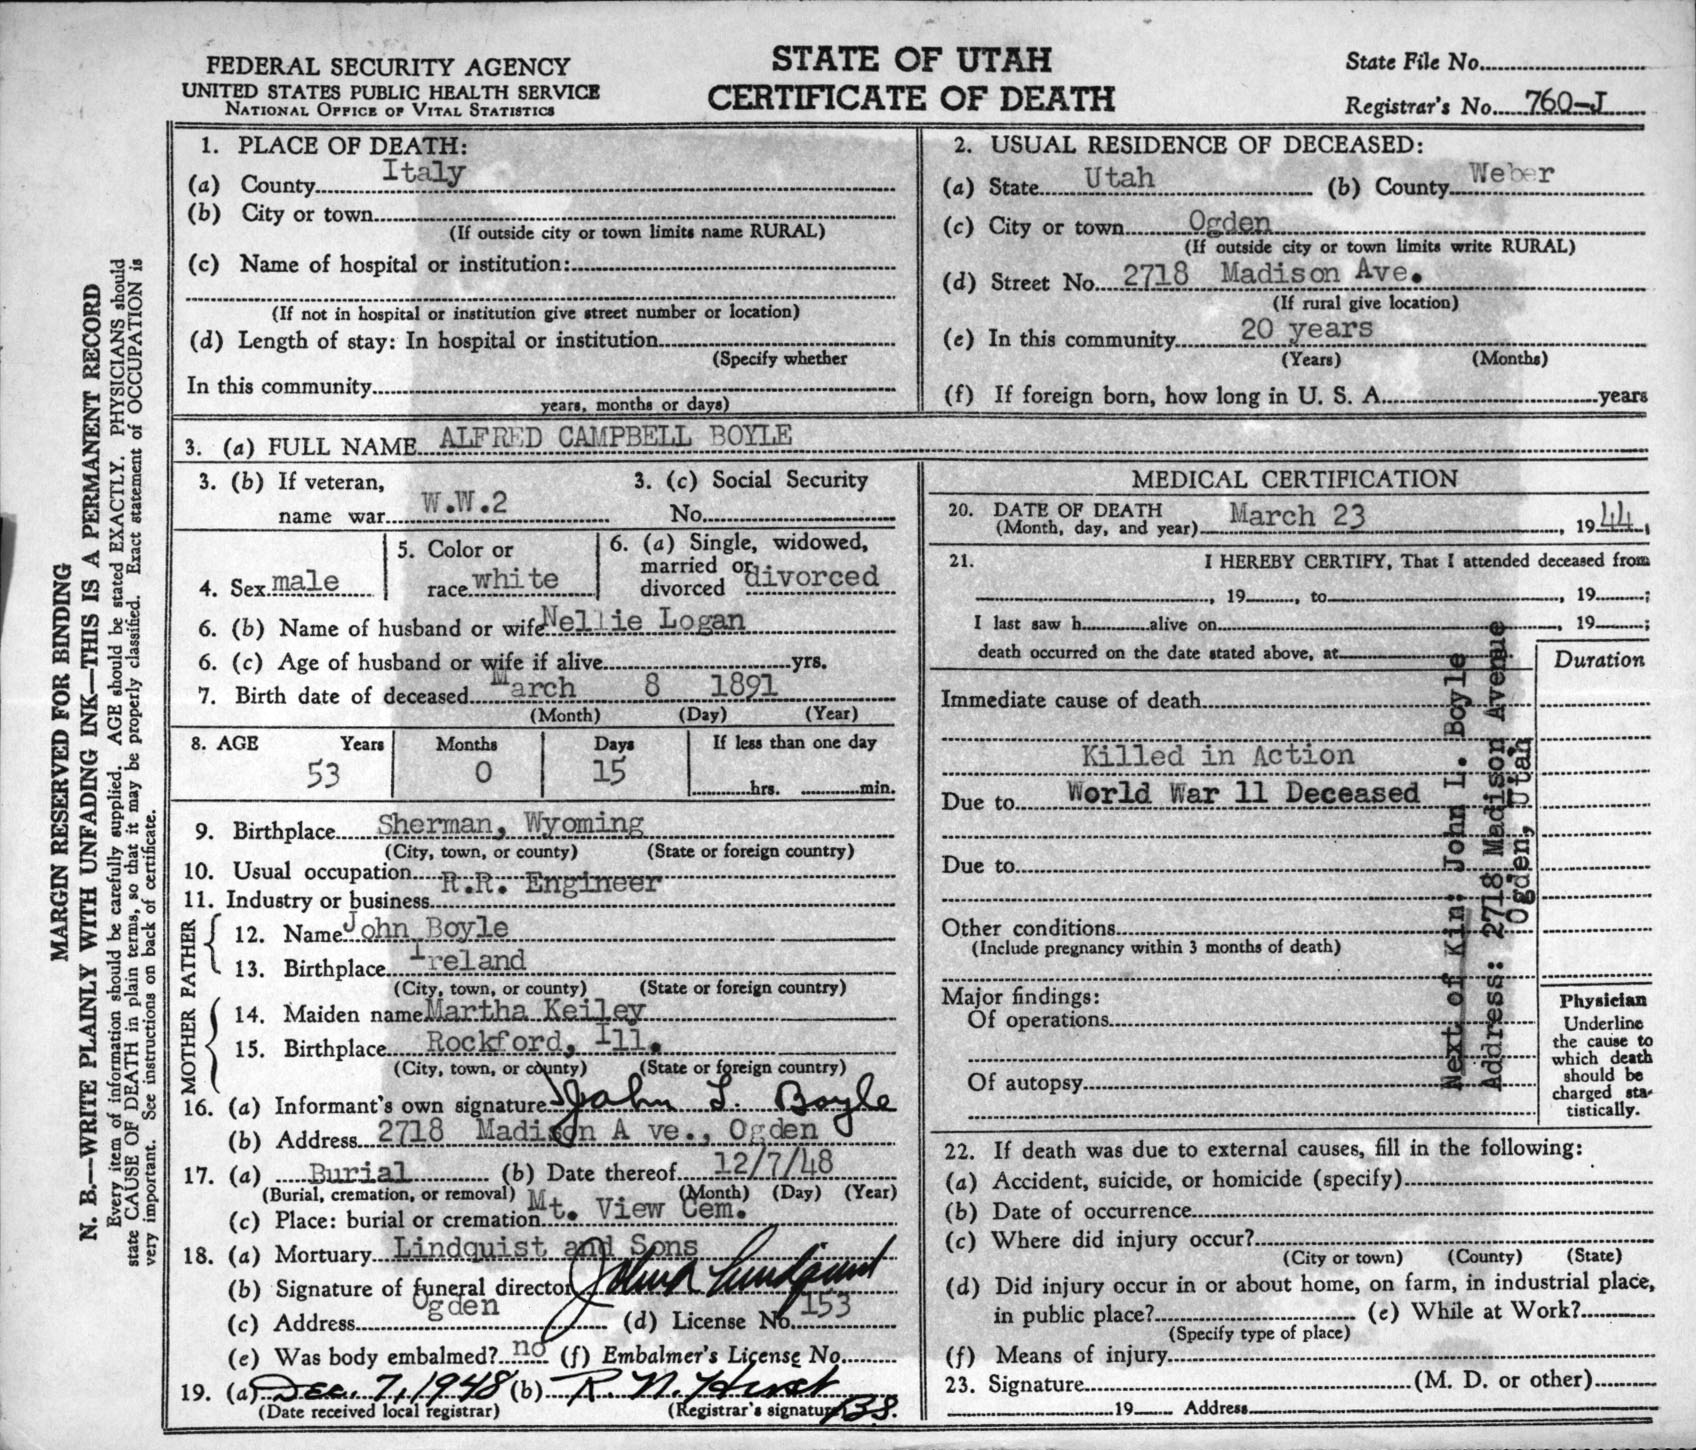 FEDERAL SECURITY AGENCY
UNITED STATES PUBLIC HEALTH SERVICE
NATIONAL OFFICE OF VITAL STATISTICS
STATE OF UTAH
CERTIFICATE OF DEATH
State File No.
Registrar's No. 760-J
MARGIN RESERVED FOR BINDING
N. B.—WRITE PLAINLY WITH UNFADING INK—THIS IS A PERMANENT RECORD
Every item of information should be carefully supplied. AGE should be stated EXACTLY. PHYSICIANS should
state CAUSE OF DEATH in plain terms, so that it may be properly classified. Exact statement of OCCUPATION is
very important. See instructions on back of certificate.
1. PLACE OF DEATH:
(a) County Italy
(b) City or town
(If outside city or town limits name RURAL)
(c) Name of hospital or institution:
(If not in hospital or institution give street number or location)
(d) Length of stay: In hospital or institution
(Specify whether
In this community
years, months or days)
2. USUAL RESIDENCE OF DECEASED:
(a) State Utah (b) County Weber
(c) City or town Ogden
(If outside city or town limits write RURAL)
(d) Street No. 2718 Madison Ave.
(If rural give location)
(e) In this community 20 years
(Years) (Months)
(f) If foreign born, how long in U. S. A. years
3. (a) FULL NAME ALFRED CAMPBELL BOYLE
3. (b) If veteran,
name war W.W.2
3. (c) Social Security
No.
4. Sex male
5. Color or
race white
6. (a) Single, widowed,
married or
divorced divorced
6. (b) Name of husband or wife Nellie Logan
6. (c) Age of husband or wife if alive yrs.
7. Birth date of deceased March 8 1891
(Month) (Day) (Year)
8. AGE Years Months Days If less than one day
53 0 15 hrs. min.
9. Birthplace Sherman, Wyoming
(City, town, or county) (State or foreign country)
10. Usual occupation R.R. Engineer
11. Industry or business
FATHER
12. Name John Boyle
13. Birthplace Ireland
(City, town, or county) (State or foreign country)
MOTHER
14. Maiden name Martha Keiley
15. Birthplace Rockford, Ill.
(City, town, or county) (State or foreign country)
16. (a) Informant's own signature John L. Boyle
(b) Address 2718 Madison A ve., Ogden
17. (a) Burial (b) Date thereof 12/7/48
(Burial, cremation, or removal) (Month) (Day) (Year)
(c) Place: burial or cremation Mt. View Cem.
18. (a) Mortuary Lindquist and Sons
(b) Signature of funeral director Lindquist
(c) Address Ogden (d) License No. 153
(e) Was body embalmed? no (f) Embalmer's License No.
19. (a) Dec. 7, 1948 (b) R. N.
(Date received local registrar) (Registrar's signature)
MEDICAL CERTIFICATION
20. DATE OF DEATH
(Month, day, and year) March 23, 1944.
21. I HEREBY CERTIFY, That I attended deceased from
, 19 , to , 19 ;
I last saw h alive on , 19 ;
death occurred on the date stated above, at .
Duration
Immediate cause of death
Killed in Action
Due to World War 11 Deceased
Due to
Other conditions
(Include pregnancy within 3 months of death)
Major findings:
Of operations
Of autopsy
Next of Kin; John L. Boyle
Address: 2718 Madison Avenue
Ogden, Utah
Physician
Underline
the cause to
which death
should be
charged sta-
tistically.
22. If death was due to external causes, fill in the following:
(a) Accident, suicide, or homicide (specify)
(b) Date of occurrence
(c) Where did injury occur?
(City or town) (County) (State)
(d) Did injury occur in or about home, on farm, in industrial place,
in public place? (e) While at Work?
(Specify type of place)
(f) Means of injury
23. Signature (M. D. or other)
19 Address